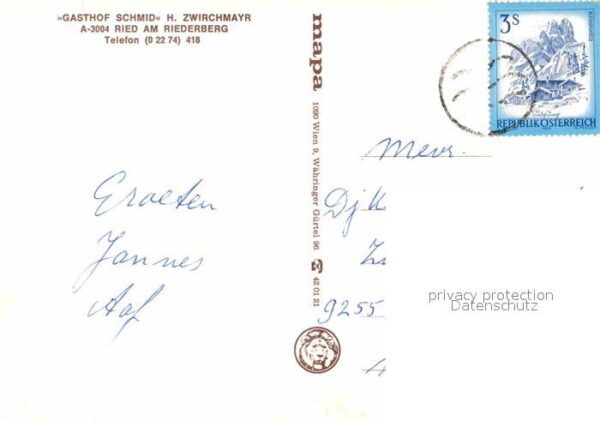 »GASTHOF SCHMID« H. ZWIRCHMAYR
A-3004 RIED AM RIEDERBERG
Telefon (0 22 74) 418
Groeten
Jannes
Aaf
mapa
1090 Wien 9, Währinger Gürtel 96
42 01 21
3S
REPUBLIK ÖSTERREICH
Mevr.
9255
privacy protection
Datenschutz